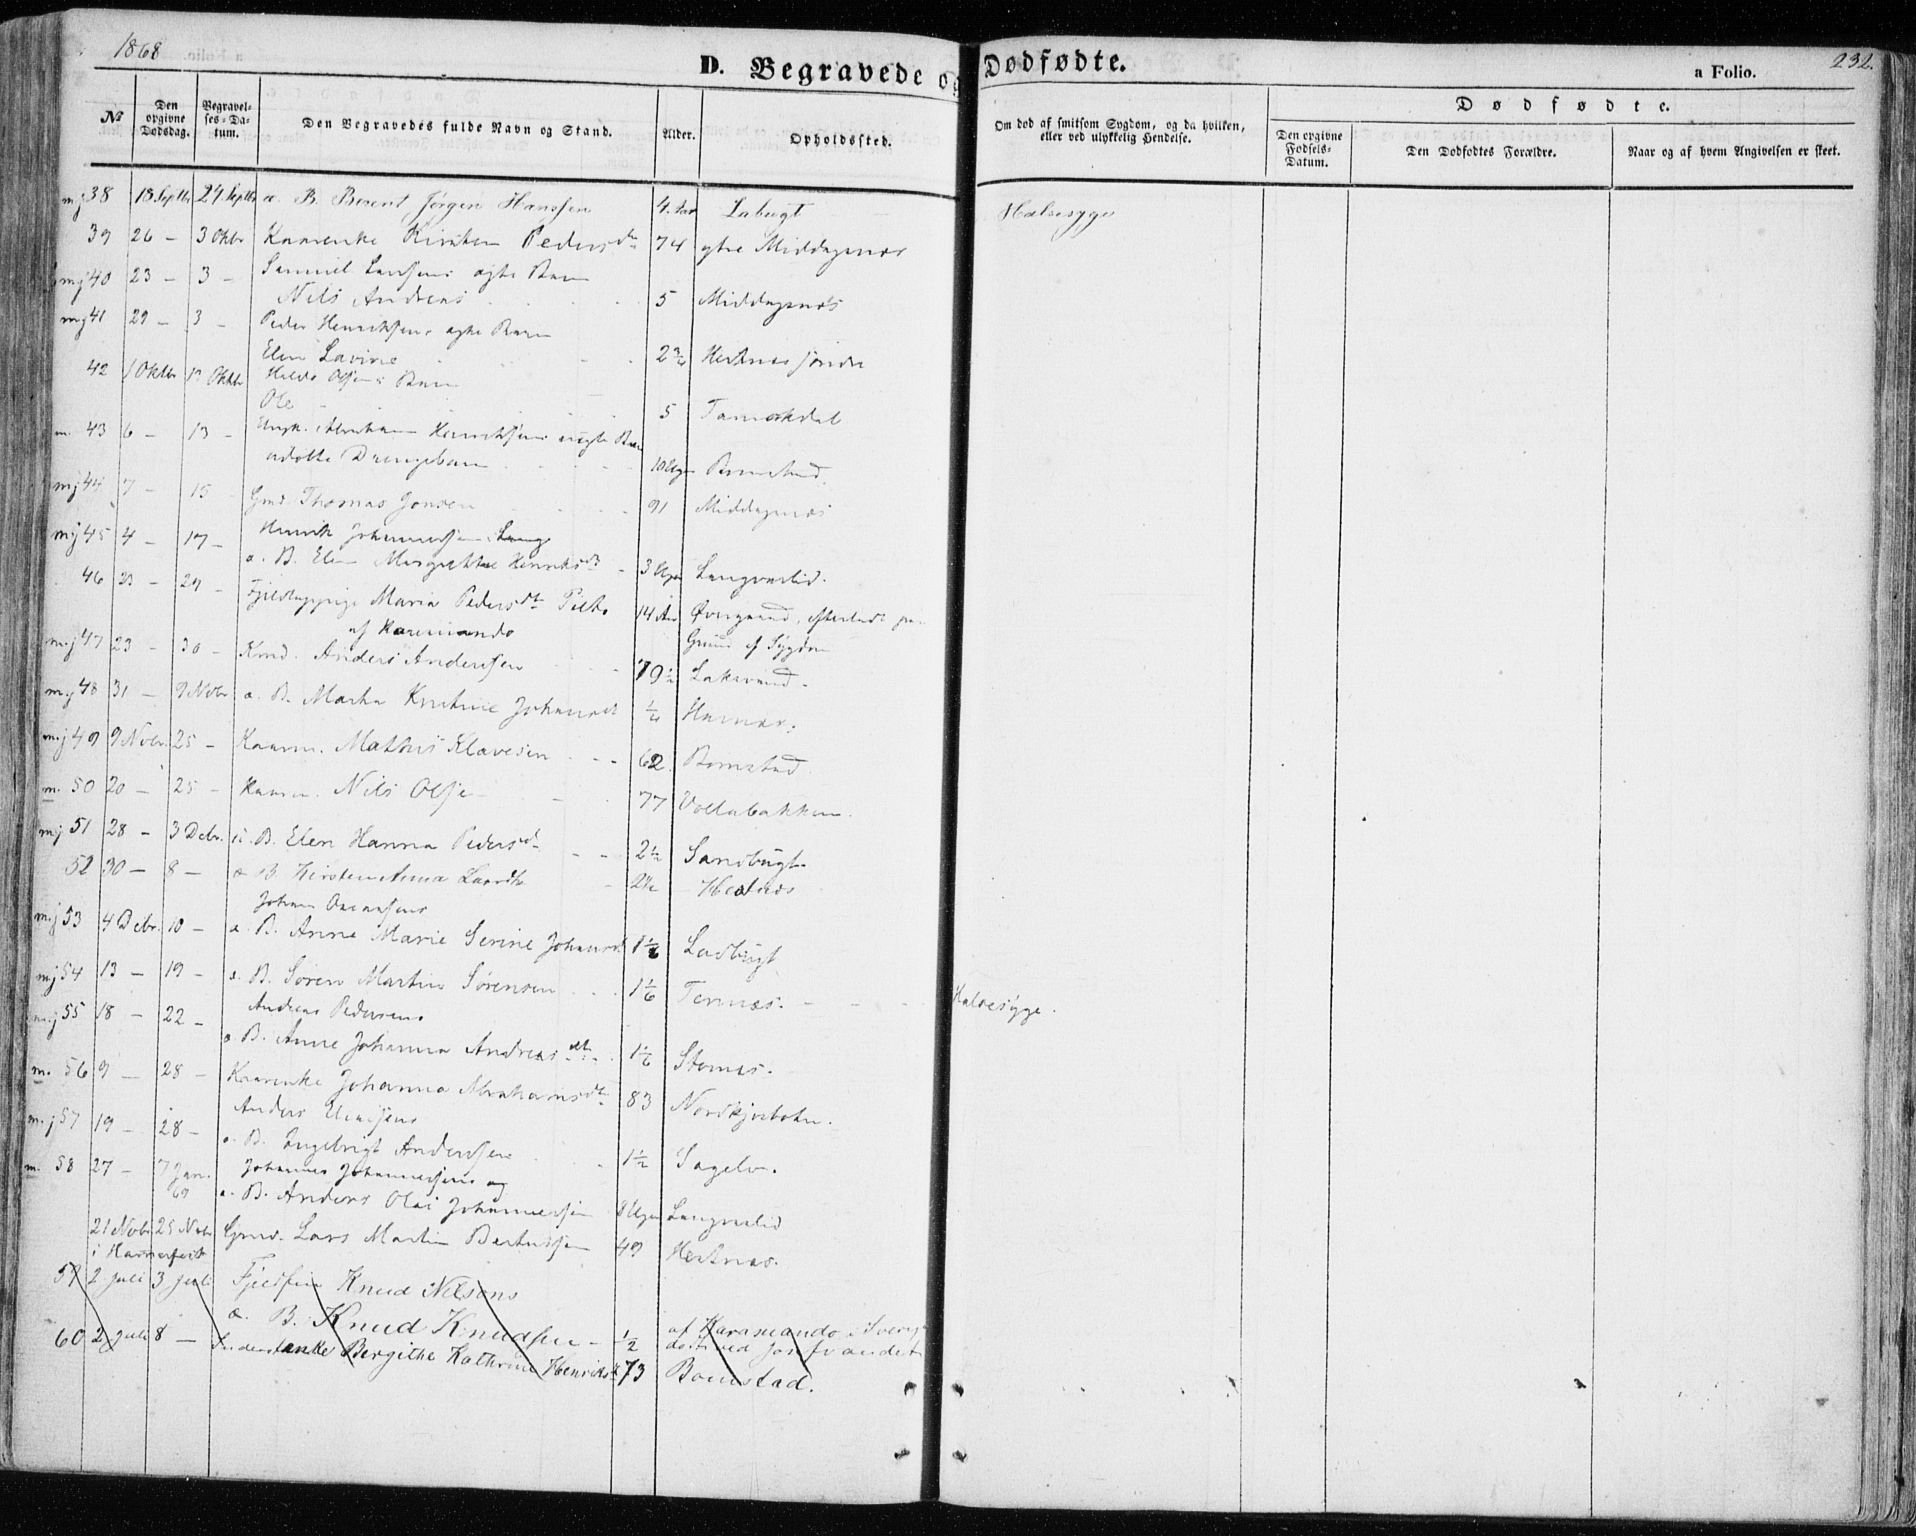 1868
D. Begravede og Dødfødte.
a Folio.
232.
№ Den opgivne Dødsdag. Begravelses-Datum. Den Begravedes fulde Navn og Stand. Alder. Opholdssted. Om død af smitsom Sygdom, og da hvilken, eller ved ulykkelig Hendelse. Dødfødte.
Den opgivne Fødsels-Datum. Den Dødfødtes Forældre. Naar og af hvem Angivelsen er skeet.
38 13 Septbr 24 Septbr æ. B. Berent Jørgen Hanssen 4 Aar Labugt Halsesyge
39 26 — 3 Oktbr Kaarenke Kirsten Pedersdtr 74 ytre Middagsnæs
mj 40 23 — 3 — Samuel Larssens ægte Barn
Nils Andreas 5 Middagsnæs
mj 41 29 — 3 — Peder Henriksens ægte Barn
Elen Lavine 2¾ Hertnæs
42 1 Oktbr Oktbr Olsens Barn
Ole 5 Tamokdal
m. 43 6 — 13 — Ungk. Abraham Henriksens uægte Barn
udøbte Drengebarn 10 Uger Bomstad
mj 44 7 — 15 Gmd. Thomas Jonsen 91 Middagsnæs
mj 45 4 — 17 — Henrik Johannessens
æ. B. Elen Margrethe Henriksdtr 3 Uger Langvaslid.
46 23 — 29 — Maria Pedersdtr
af Karesuando 14 Aar Øvergaard, efterladt paa
Grund af Sygdom
mj 47 23 — 30 — Kmd. Anders Andersen 79½ Laksvand.
mj 48 31 — 9 Novbr æ. B. Martha Kristine Johansdtr ¼ Hamnæs.
mj 49 9 Novbr. 25 — Kaarm. Mathis Klavesen 62 Bomstad
m. 50 20 — 25 — Kaarm. Nils Olsen 77 Vollabakken.
mj 51 28 — 3 Debr. æ. B. Elen Hanna Pedersdtr 2½ Sandbugt.
52 30 — 8 — æ B Kirsten Anna 2½ Hertnæs
Johan
mj 53 4 Debr. 10 — æ. B. Anne Marie Serine Johansdtr Ladbugt
mj 54 13 — 19 — æ. B. Søren Martin Sørensen 1⅙ Ternæs. — Halsesyge.
Andreas Pedersens
mj 55 18 — 22 — æ. B. Anne Johanna Andreasdtr. 1⅙ Stornæs.
m. 56 9 — 28 — Kaarenke Johanna Abrahamsdtr 83 Nordkjosbotn.
Anders
mj 57 19 — 28 — æ. B. Ingebrigt Andersen 1½ Sagelv.
Johannes Johannessens og
m. 58 27 — 7 Jan. 69 æ. B. Anders Olai Johannessen 8 Uger Langvaslid
21 Novbr 25 Novbr Gmd. Lars Martin Bertussen 49 Hertnæs.
i Hammerfest
59 2 Juli 3 Juli Fjeldfin Knud Nilsens
æ. B. Knud Knudsen — ½ af Karasuando i Sverige
60 2 Juli 8 — Bergithe Kathrine Henriksdtr 73 Bomstad.